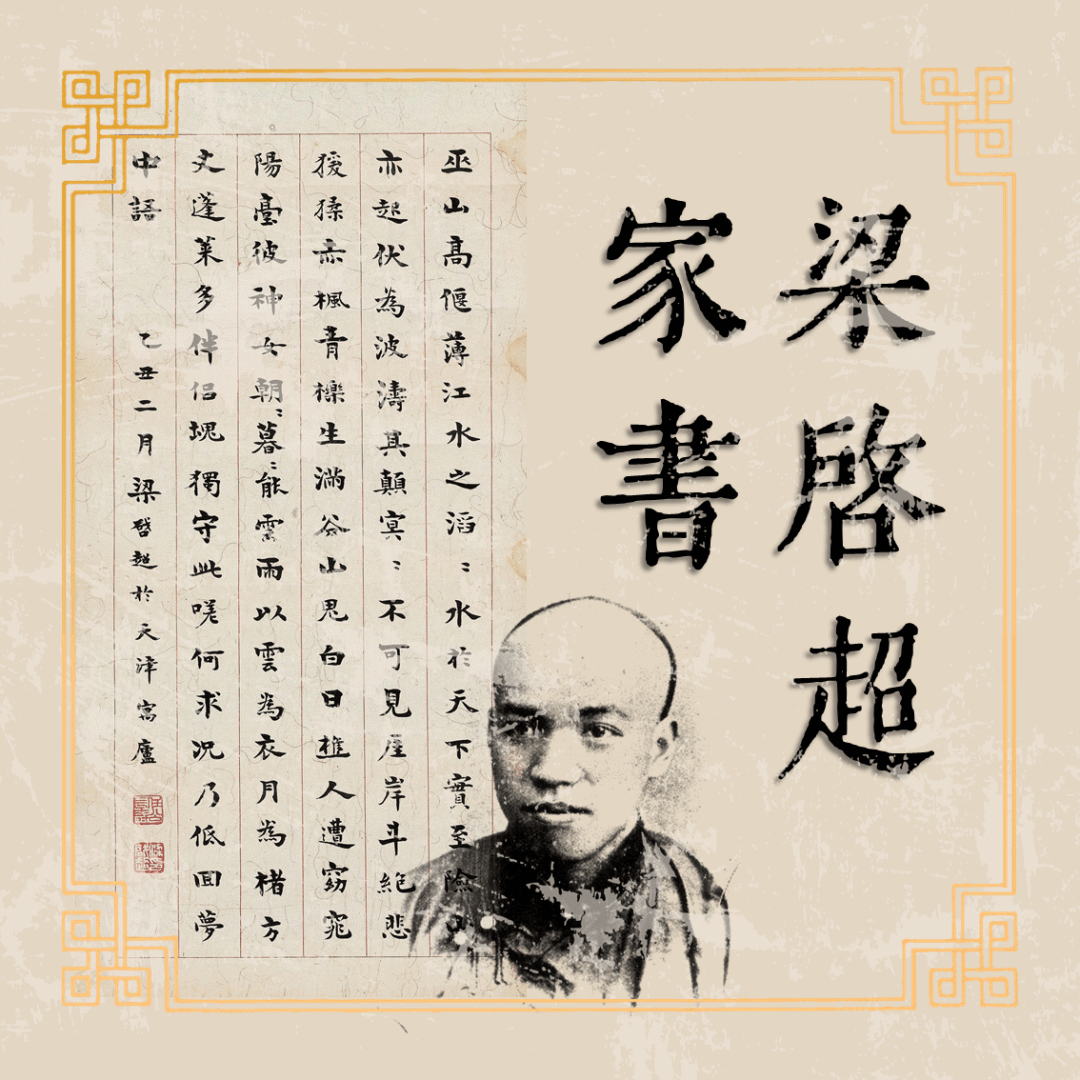 梁啓超
家書
巫山高偃薄江水之滔〻水於天下實至險山
亦起伏為波濤其顛冥〻不可見厓岸斗絕悲
猨猱赤楓青櫟生滿谷山鬼白日樵人遭窈窕
陽臺彼神女朝〻暮〻能雲雨以雲為衣月為楮方
丈蓬萊多伴侶塊獨守此嗟何求況乃低回夢
中語 乙丑二月梁啓超於天津寫廬